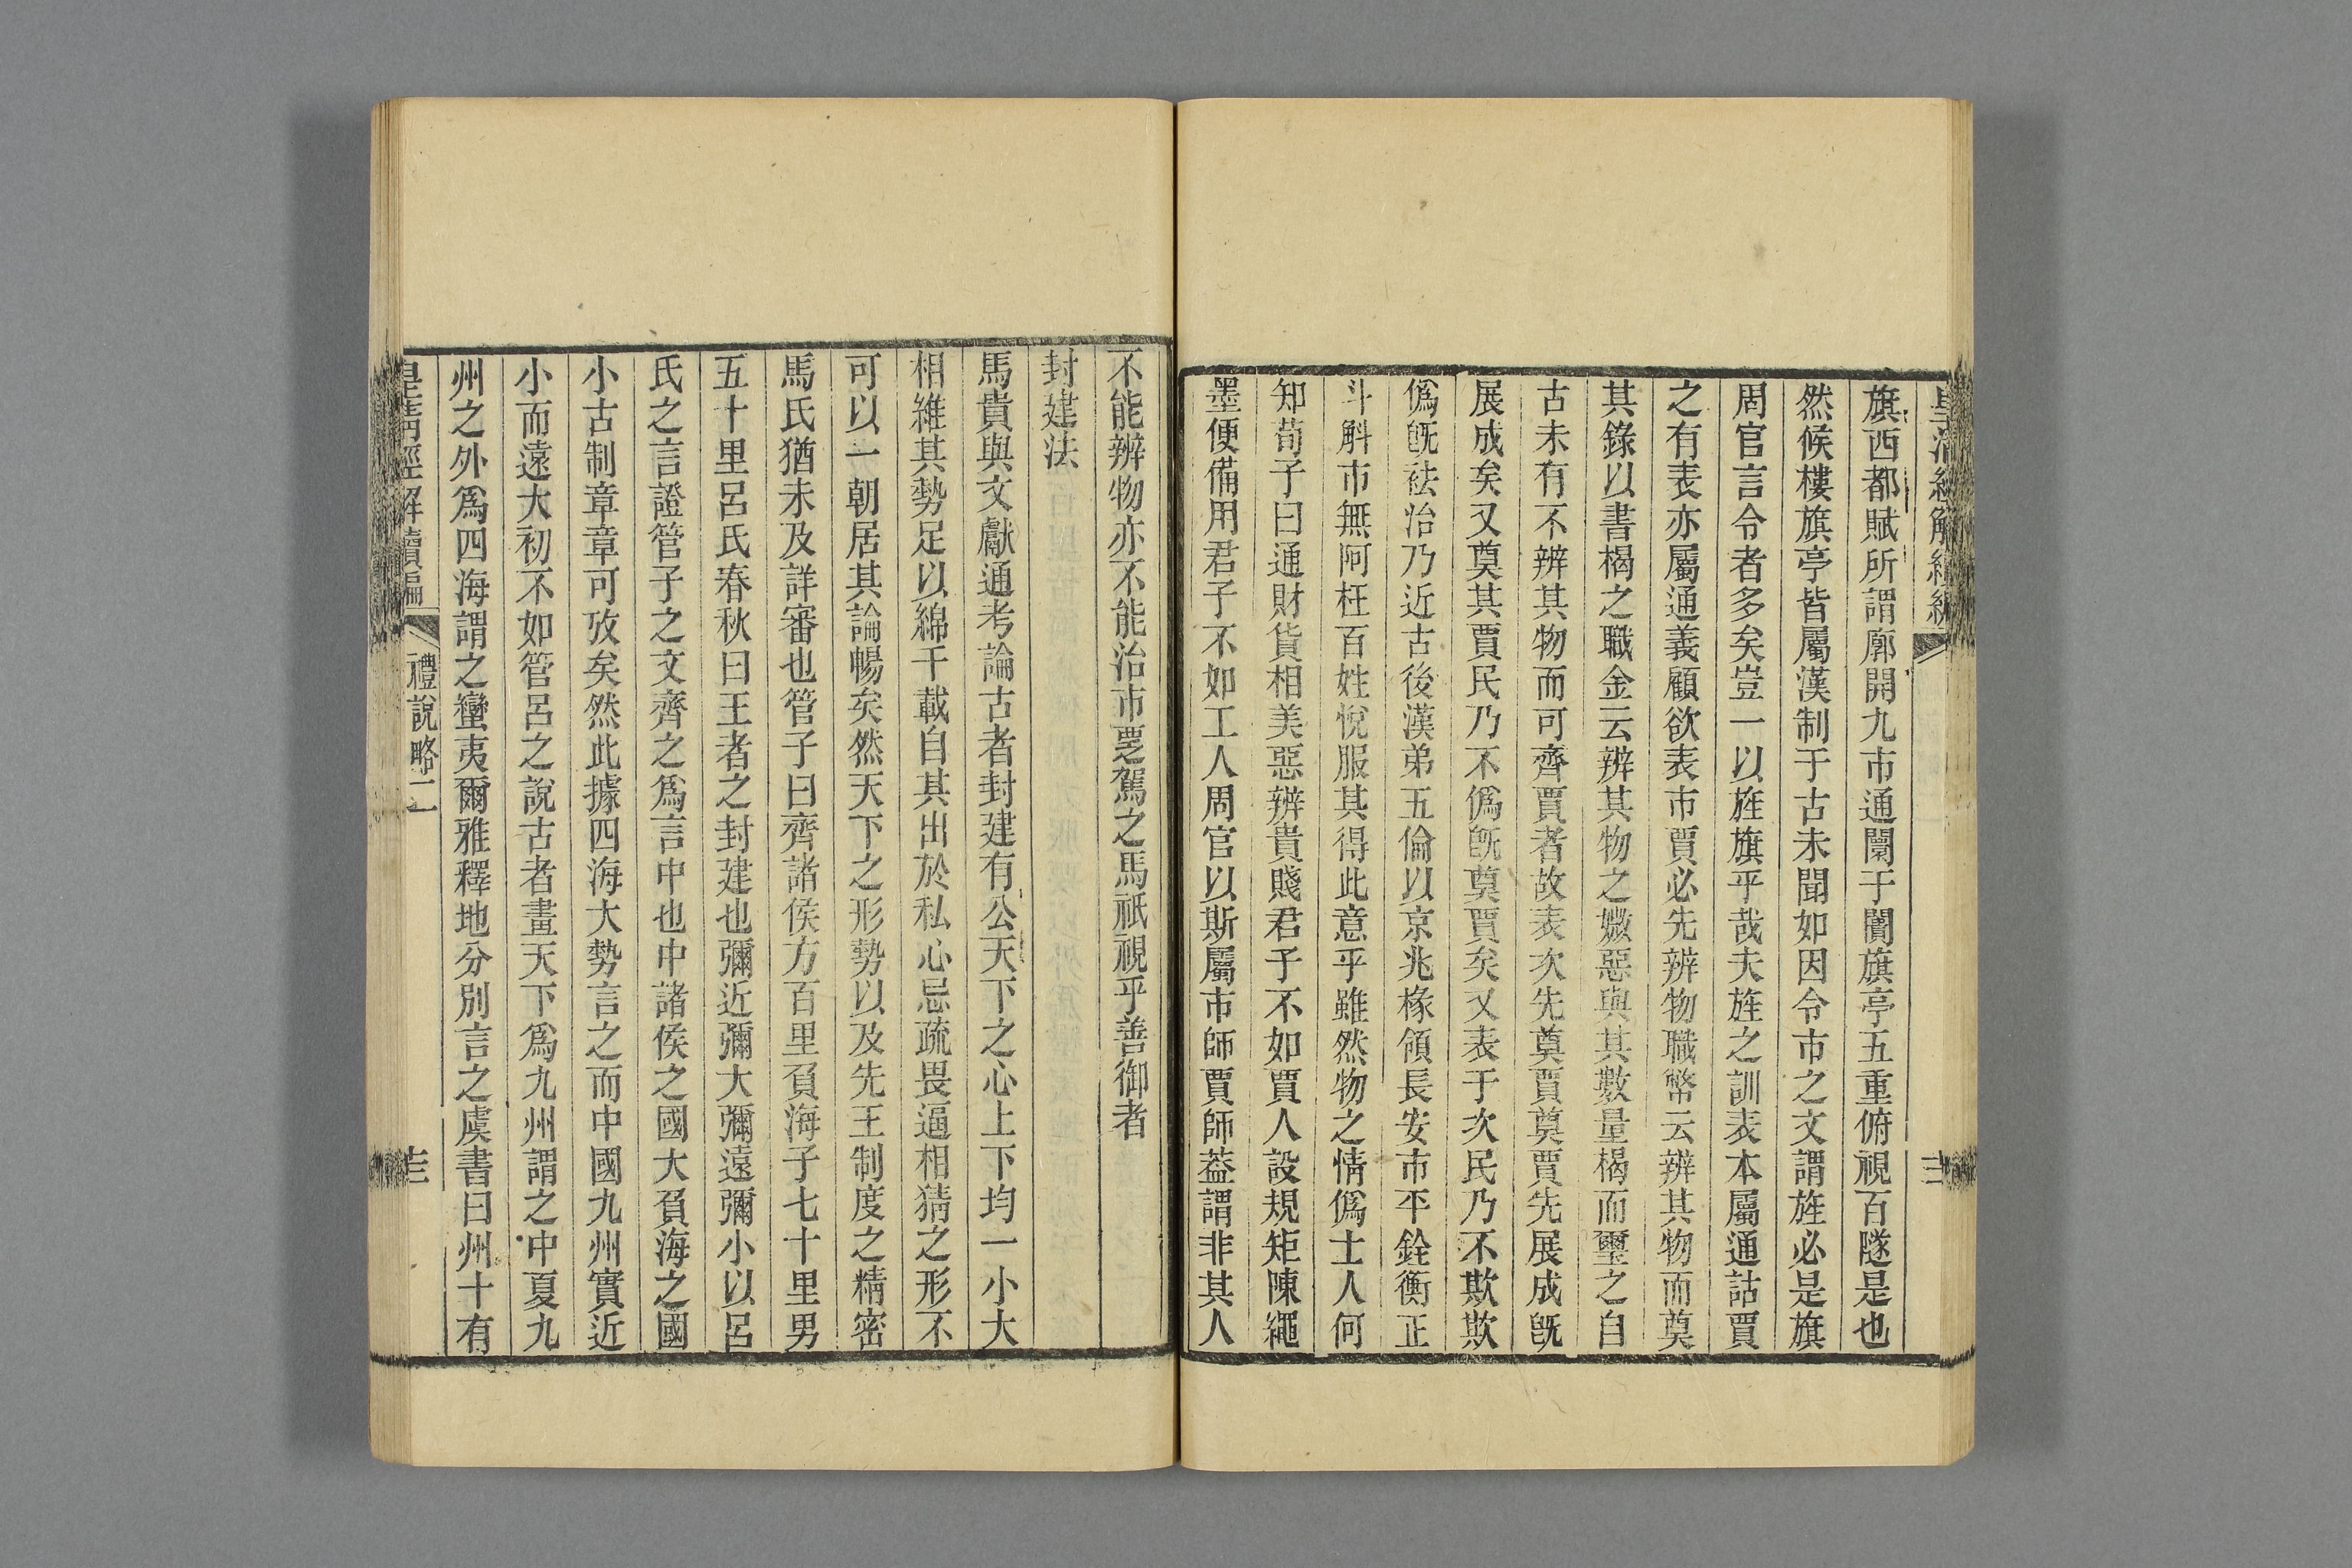 旗西都賦所謂廓開九市通闤于闠旗亭五重俯視百隧是也
然候樓旗亭皆屬漢制于古未聞如因令市之文謂旌必是旗
周官言令者多矣豈一以旌旗乎哉夫旌之訓表本屬通詁賈
之有表亦屬通義顧欲表市賈必先辨物職幣云辨其物而奠
其錄以書楬之職金云辨其物之媺惡與其數量楬而璽之自
古未有不辨其物而可齊賈者故表次先奠賈奠賈先展成旣
展成矣又奠其賈民乃不僞旣奠賈矣又表于次民乃不欺欺
僞旣祛治乃近古後漢弟五倫以京兆椽領長安市平銓衡正
斗斛市無阿枉百姓悅服其得此意乎雖然物之情僞士人何
知荀子曰通財貨相美惡辨貴賤君子不如賈人設規矩陳繩
墨便備用君子不如工人周官以斯屬市師賈師葢謂非其人
不能辨物亦不能治市覂駕之馬祇視乎善御者
封建法
馬貴與文獻通考論古者封建有公天下之心上下均一小大
相維其勢足以綿千載自其出於私心忌疏畏逼相猜之形不
可以一朝居其論暢矣然天下之形勢以及先王制度之精密
馬氏猶未及詳審也管子曰齊諸侯方百里負海子七十里男
五十里呂氏春秋曰王者之封建也彌近彌大彌遠彌小以呂
氏之言證管子之文齊之爲言中也中諸侯之國大負海之國
小古制章章可攷矣然此據四海大勢言之而中國九州實近
小而遠大初不如管呂之說古者畫天下爲九州謂之中夏九
州之外爲四海謂之蠻夷爾雅釋地分別言之虞書曰州十有
皇淸經解續編
禮說略二